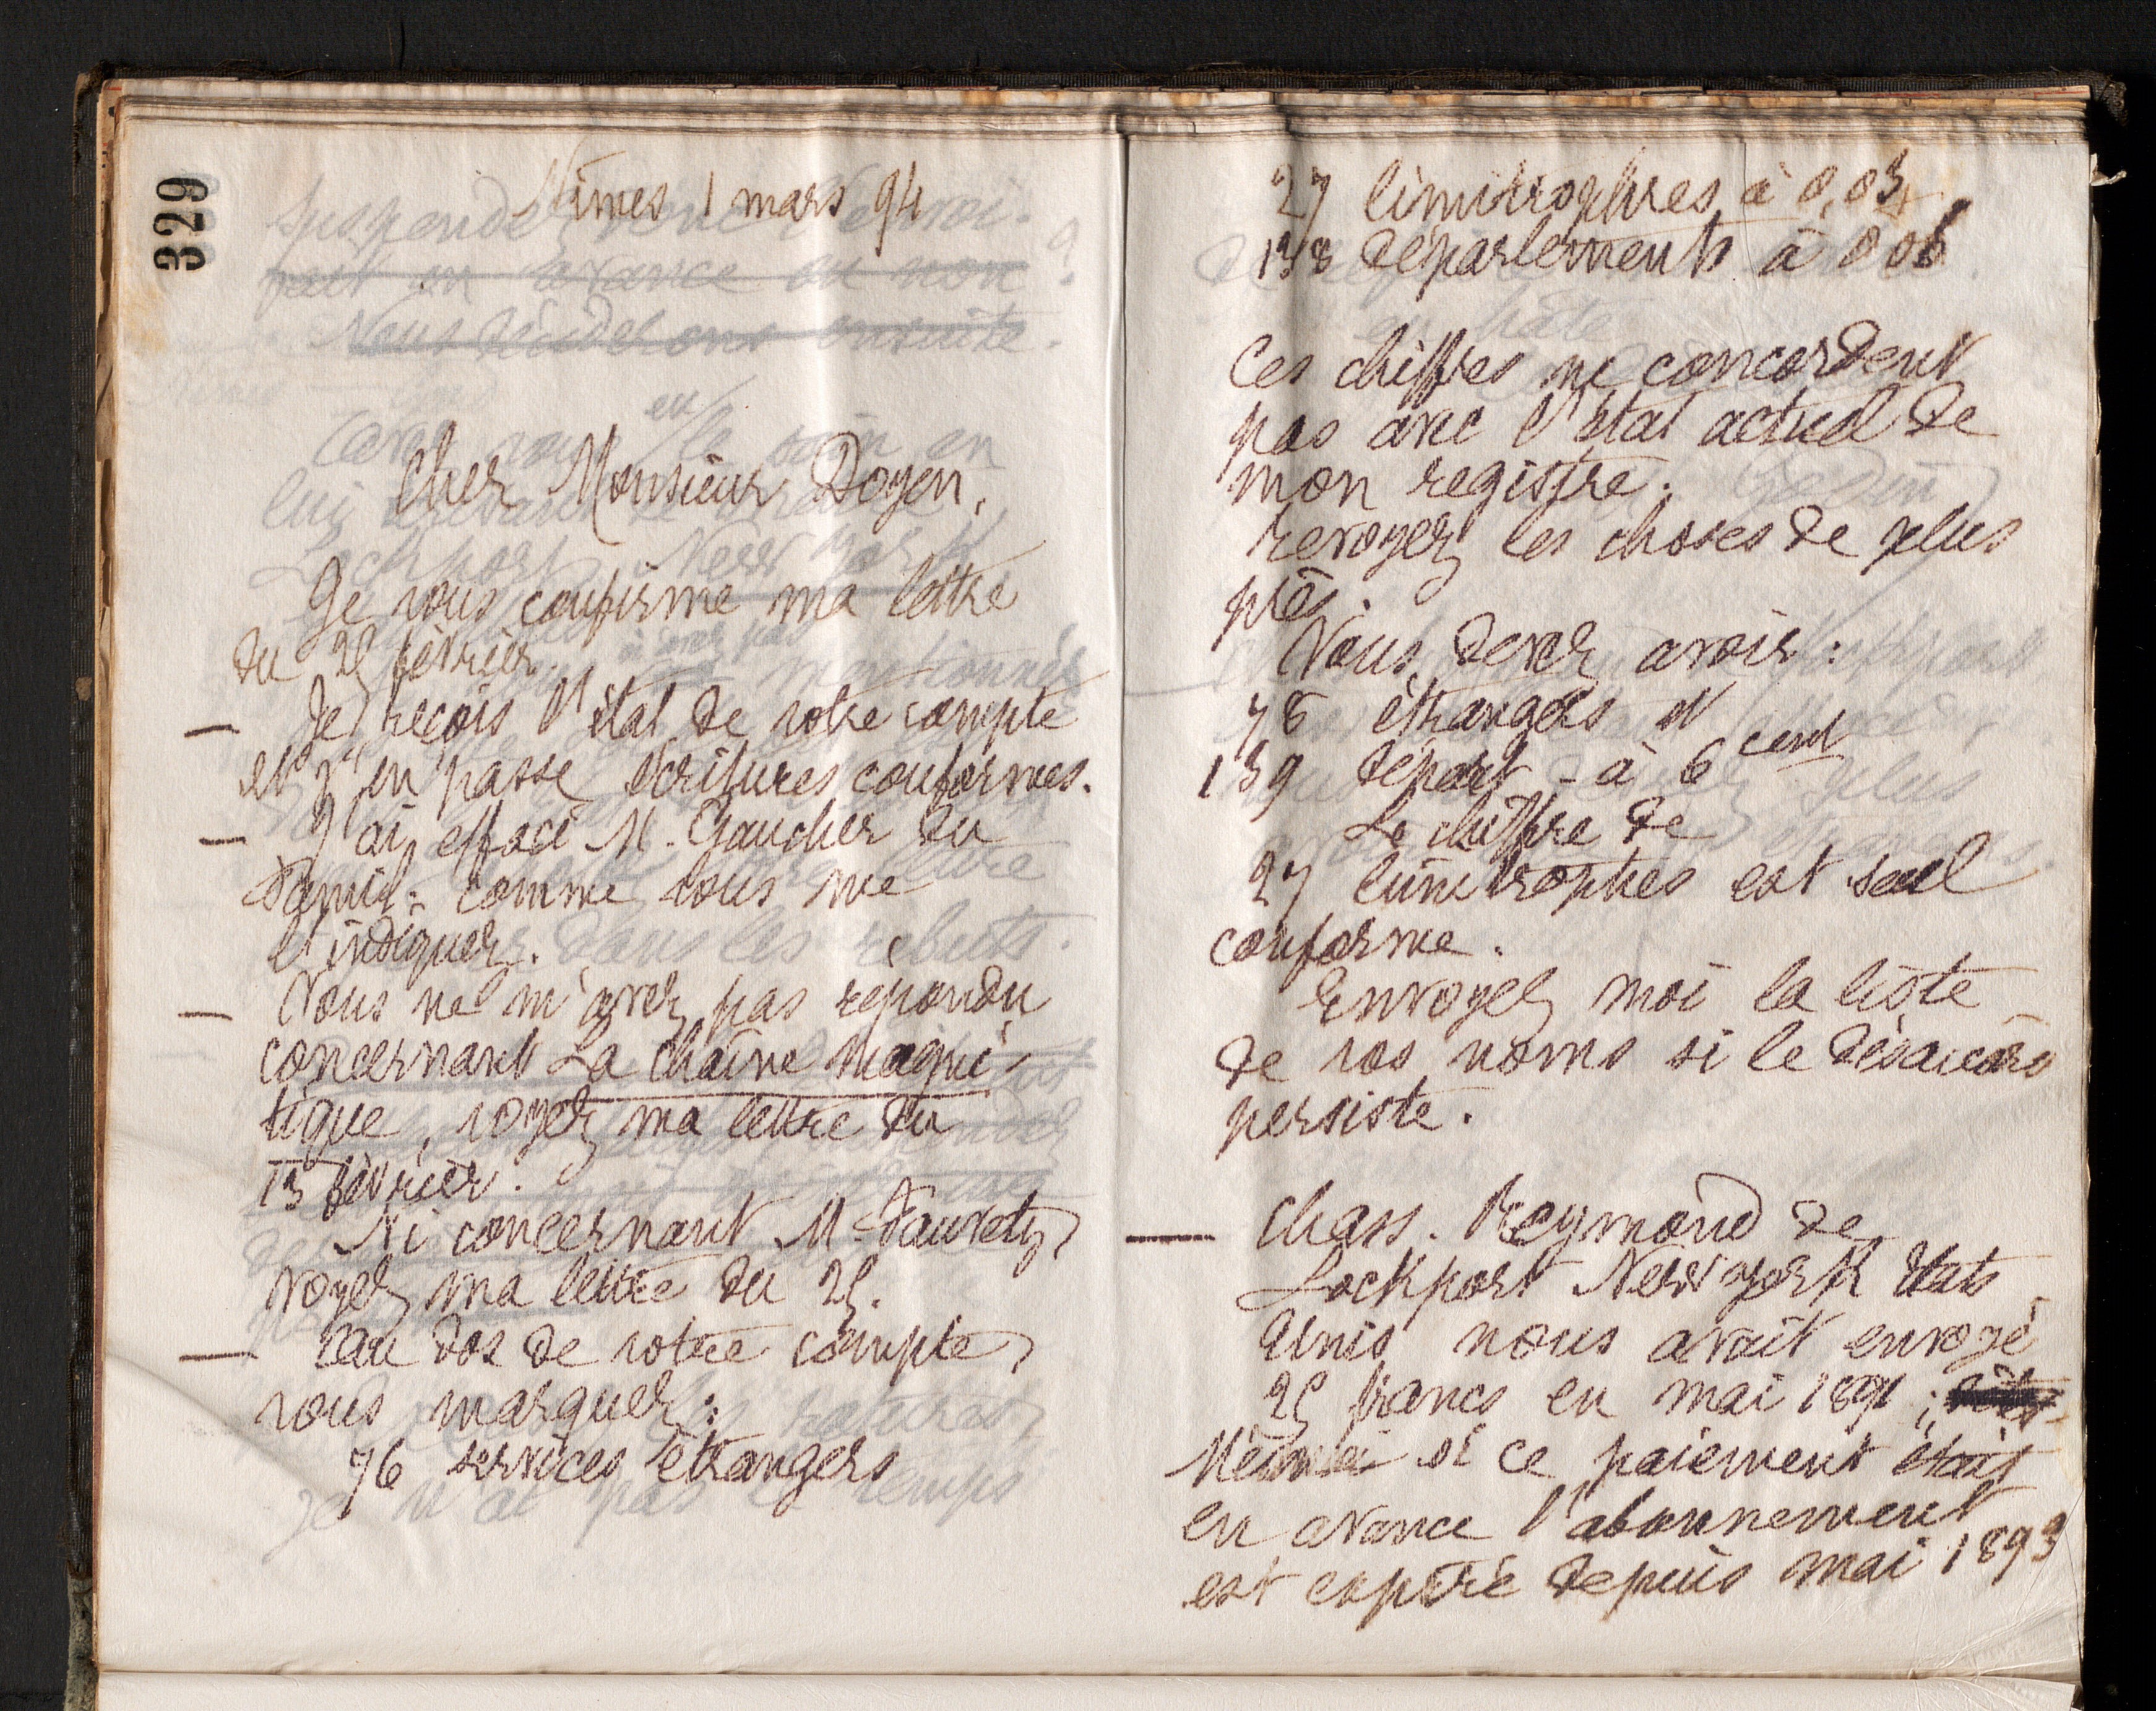 329
Nîmes 1 mars 94
Cher Monsieur Doyen,
Je vous confirme ma lettre
du 25 février.
— Je reçois l'état de votre compte
et j'en passe écritures conformes.
— J'ai effacé M. Gaucher du
Famil: comme vous me
l'indiquez.
— Vous ne m'avez pas répondu
concernant La chaîne magné-
tique, voyez ma lettre du
15 février.
Ni concernant M. Fauvety,
voyez ma lettre du 25.
— Au dos de votre compte,
vous marquez:
76 services étrangers
27 limitrophes à 0,03
138 départements à 0 06
Ces chiffres ne concordent
pas avec l'état actuel de
mon registre.
revoyez les choses de plus
près.
Vous devez avoir:
78 étrangers et
139 départ - à 6 cent
Le chiffre de
27 limitrophes est seul
conforme.
Envoyez moi la liste
de vos noms si le désaccord
persiste.
— Chass. Reymond de
Lockport New york Etats
Unis nous avait envoyé
25 francs en mai 1891;
Même si ce paiement était
en avance l'abonnement
est expiré depuis mai 1893